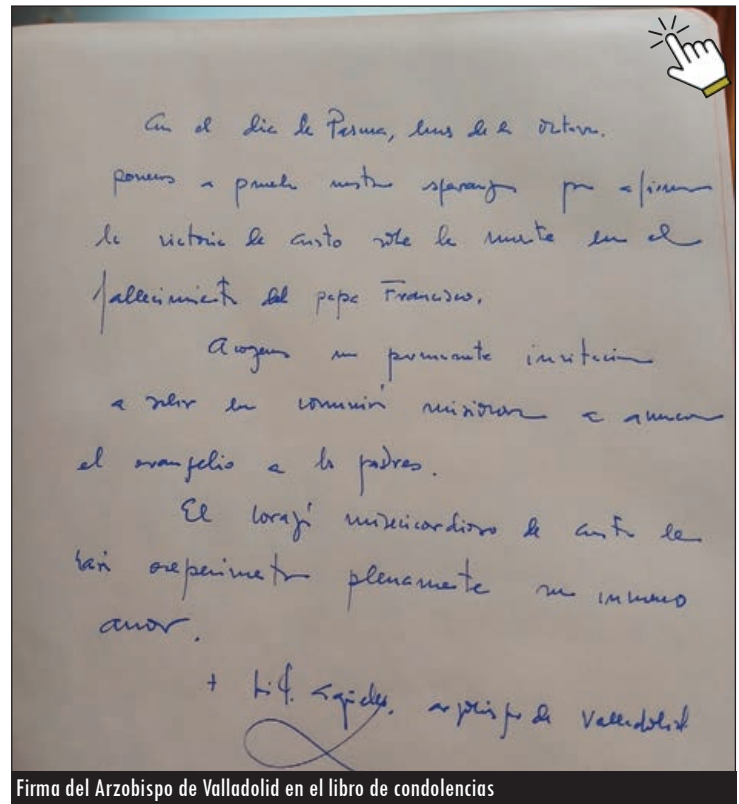 En el día de Pascua, lunes de la octava,
ponemos a prueba nuestra esperanza para afirmar
la victoria de Cristo sobre la muerte en el
fallecimiento del papa Francisco.
Acogemos su permanente invitación
a salir en comunión misionera a anunciar
el evangelio a los pobres.
El corazón misericordioso de Cristo le
hará experimentar plenamente su inmenso
amor.
+ Argüello, arzobispo de Valladolid
Firma del Arzobispo de Valladolid en el libro de condolencias